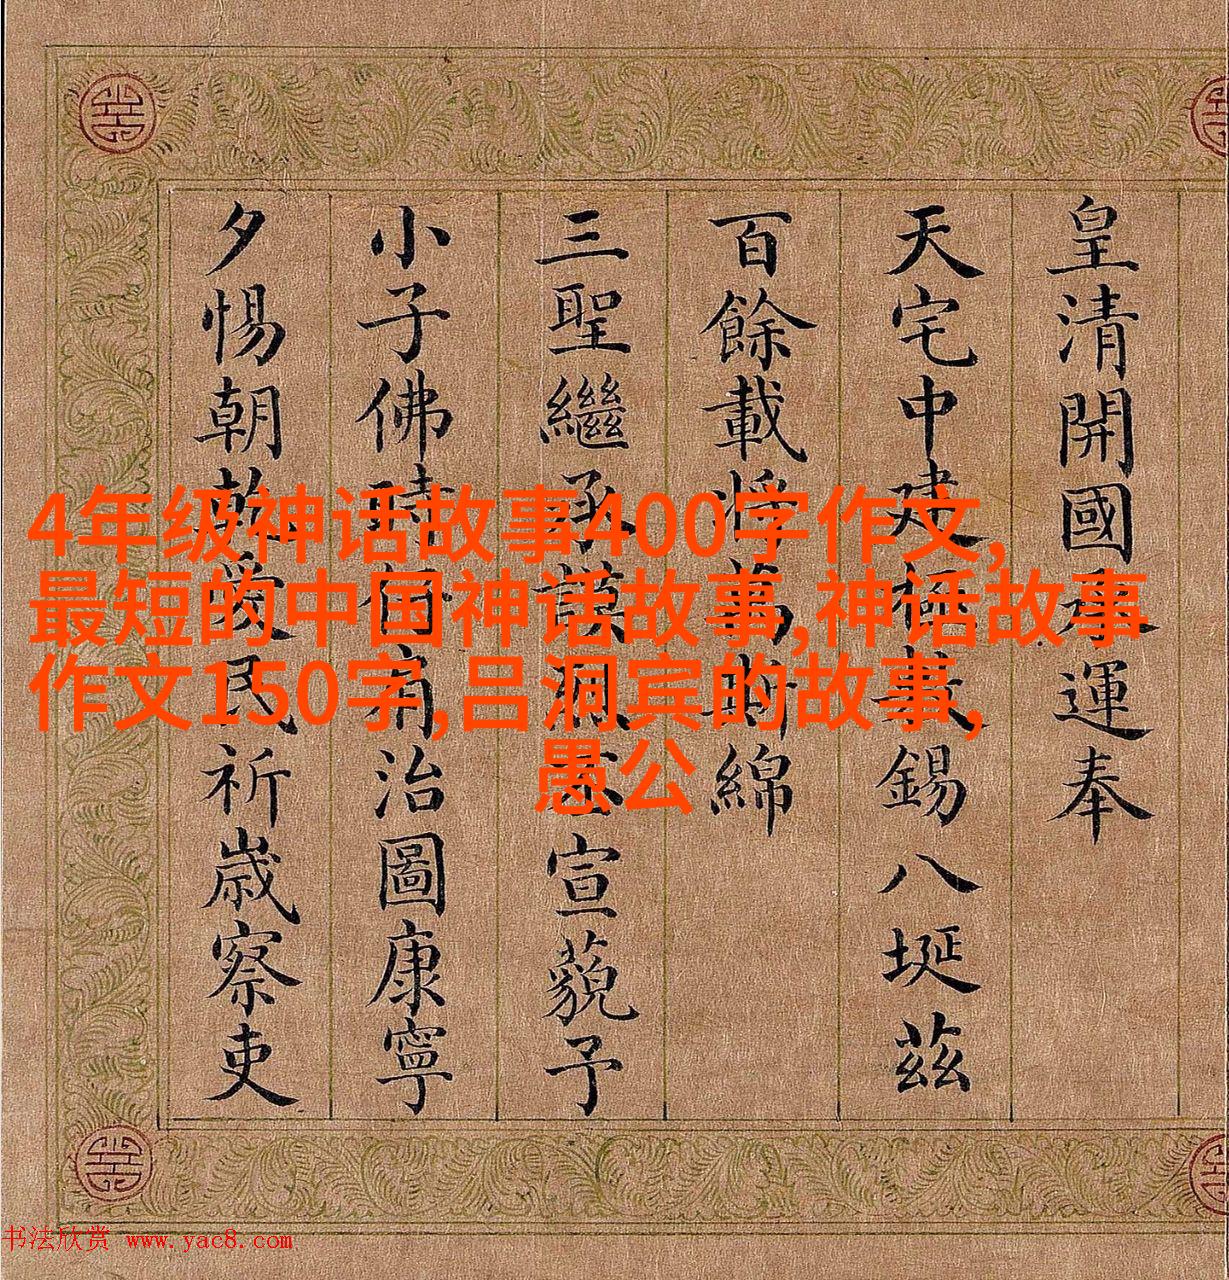 皇清開國承運奉
天宅中建極載錫八埏茲
百餘載將萬斯綿
三聖繼承謨烈丕宣藐予
小子佛時仔肩治圖康寧
夕惕朝乾愛民祈歲察吏
4年级神话故事400字作文,
最短的中国神话故事,神话故事
作文150字,吕洞宾的故事,
愚公
书法欣赏 www.yac8.com